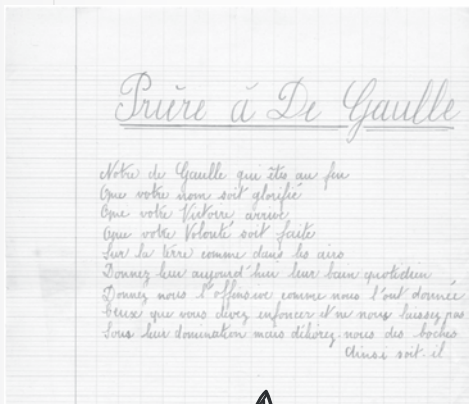 Prière à De Gaulle
Notre de Gaulle qui êtes au feu
Que votre nom soit glorifié
Que votre Victoire arrive
Que votre Volonté soit faite
Sur la terre comme dans les airs
Donnez leur aujourd'hui leur bain quotidien
Donnez nous l'offensive comme nous l'ont donnée
Ceux que vous devez enfoncer et ne nous laissez pas
Sous leur domination mais délivrez nous des boches
Ainsi soit il